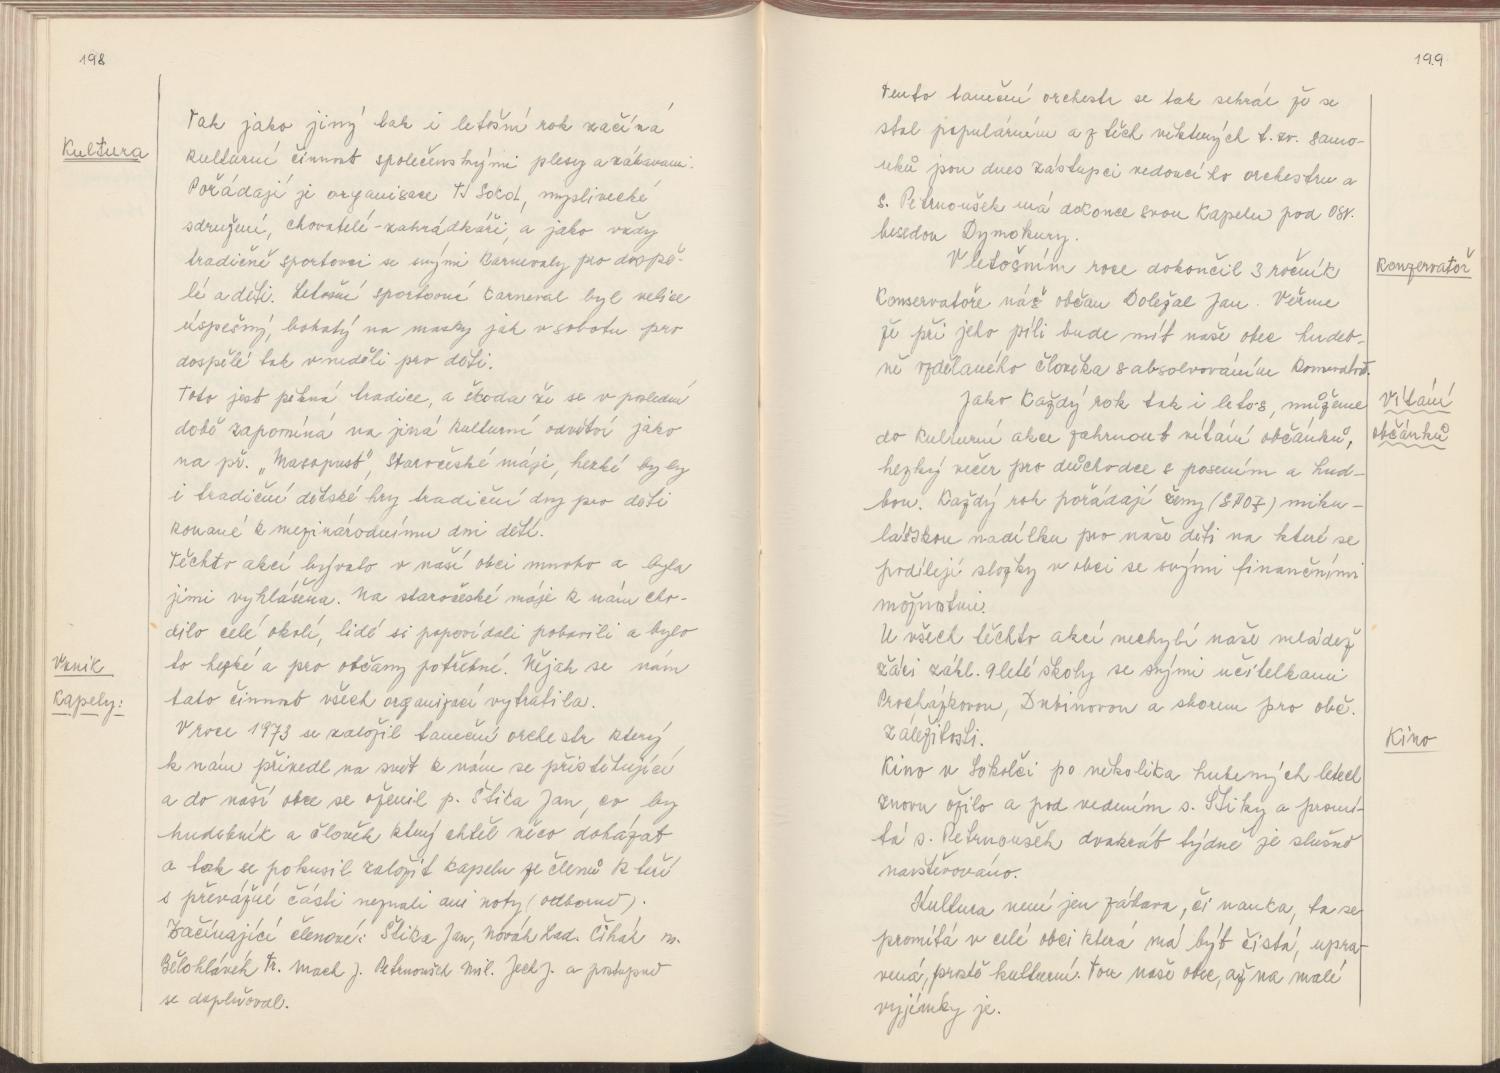 198
Kultura
Tak jako jiný tak i letošní rok začíná
kulturní činnost společenskými plesy a zábavami.
Pořádají je organisace TJ Sokol, myslivecké
sdružení, chovatelé-zahrádkáři, a jako vždy
tradičně sportovci se svými karnevaly pro dospě-
lé a děti. Letošní sportovní karneval byl velice
úspěšný, bohatý na masky jak v sobotu pro
dospělé tak v neděli pro děti.
Toto jest pěkná tradice, a škoda že se v poslední
době zapomíná na jiná kulturní odvětví jako
na př. „Masopust", Staročeské máje, hezké byly
i tradiční dětské hry tradiční dny pro děti
konané k mezinárodnímu dni dětí.
Těchto akcí bývalo v naší obci mnoho a byla
jimi vyhlášena. Na staročeské máje k nám cho-
dilo celé okolí, lidé si popovídali pobavili a bylo
to hezké a pro občany potřebné. Nějak se nám
tato činnost všech organizací vytratila.
Vznik
kapely:
V roce 1973 se založil taneční orchestr který
k nám přivedl, na svět k nám se přistěhující
a do naší obce se oženil p. Štika Jan, co by
hudebník a člověk který chtěl něco dokázat
a tak se pokusil založit kapelu ze členů kteří
s převážné části neznali ani noty (odborně).
Začínající členové: Štika Jan, Novák Lad. Čihák m.
Bělohlávek Fr. Mach J. Petrnoušek Mil. Jech J. a postupně
se doplňoval.
199
Tento taneční orchestr se tak sehrál že se
stal populárním a z těch některých t. zv. samo-
uků jsou dnes zástupci vedoucího orchestru a
s. Petrnoušek má dokonce svou kapelu pod Osv.
besedou Dymokury.
Konzervatoř
V letošním roce dokončil 3 ročník
Konservatoře náš občan Doležal Jan. Věříme
že při jeho píli bude mít naše obec hudeb-
ně vzdělaného člověka s absolvováním Konservatoř.
Vítání
občánků
Jako každý rok tak i letos, můžeme
do kulturní akce zahrnout vítání občánků,
hezký večer pro důchodce s posením a hud-
bou. Každý rok pořádají ženy (SPOZ) miku-
lášskou nadílku pro naše děti na které se
podílejí složky v obci se svými finančními
možnostmi.
U všech těchto akcí nechybí naše mládež
žáci zákl. 9leté školy se svými učitelkami
Procházkovou, Dubinovou a sborem pro obč.
záležitosti.
Kino
Kino v Sokolči po několika hubených letech
znovu ožilo a pod vedením s. Štiky a promí-
tá s. Petrnoušek dvakrát týdně je slušně
navštěvováno.
Kultura není jen zábava, či nauka, ta se
promítá v celé obci která má být čistá, upra-
vená, prostě kulturní. Tou naše obec, až na malé
vyjímky je.